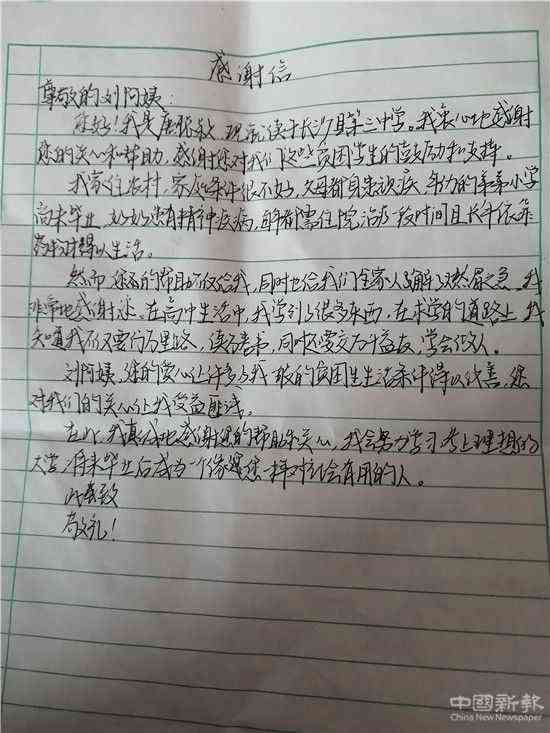 感谢信
尊敬的刘阿姨：
您好！我是唐 ，现就读于长沙县第三中学。我衷心地感谢
您的关心和帮助，感谢您对我们这些贫困学生的鼓励和支持。
我家住农村，家庭条件很不好，父母都身患顽疾，年幼的弟弟小学
尚未毕业，妈妈患有精神疾病，每年都需住院治疗一段时间且长年依靠
药物才得以生活。
然而您的帮助不仅给我，同时也给我们全家人了解了燃眉之急，我
非常地感谢您。在高中生活中，我学到了很多东西，在求学的道路上，我
知道我不仅要行万里路，读万卷书，同时还要交万个益友，学会做人。
刘阿姨，您的爱心让许多与我一般的贫困生生活条件得以改善，您
对我们的关心让我受益匪浅。
在此，我真诚地感谢您的帮助与关心，我会努力学习考上理想的
大学，将来毕业后成为一个像您一样对社会有用的人。
此致
敬礼！
中國新報
China New Newspaper